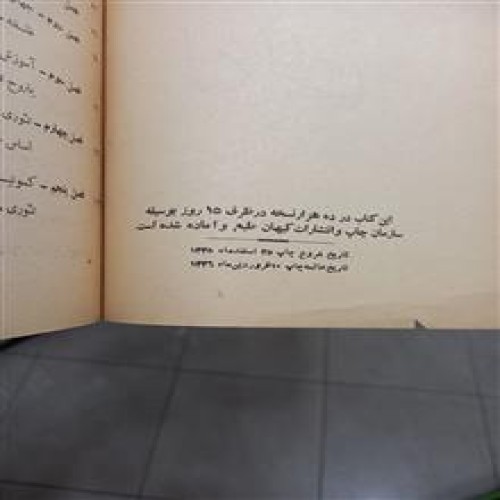 این کتاب در ده هزار نسخه در ظرف ۱۵ روز بوسیله
سازمان چاپ و انتشارات کیهان طبع و آماده شده است
تاریخ شروع چاپ ۲۵ اسفندماه ۱۳۳۵
تاریخ خاتمه چاپ ۱۰ فروردین ماه ۱۳۳۶
فصل سوم - آموزش
فصل چهارم - تئوری
اساس
فصل پنجم - کمونیـ
تئوری